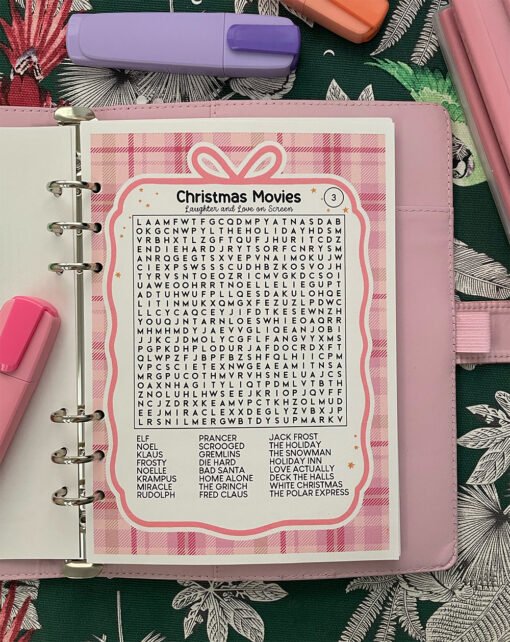 Christmas Movies
Laughter and Love on Screen
3
L A A M F W T F G C Q D M P Y A T N A S D A B
O K G C N W P Y L T H E H O L I D A Y H D S M
V R B H X T L Z G F T Q U F J H U R I T C D Z
E N D I E H A R D J R Y T S O R F C N R Y S M
A N R Q G E G T S X V E P V N A I M O K U J W
C I E X P S W S S S C U D H B Z K O S V O J H
T Y R V S N T O E O Z R I C M V G K D C S O I
U A W E O O H R R T N O E L L E L I E G U P T
A D T U H W U F P L L Q E S D A K U L O H Q E
L I T I N M U K X Q M G X F E Z U Z L P D W C
L L C Y C A Q C E Y J I F D T K E S E W N Z H
Y O U Q J N T A R N L O E S W H I E O A Q R R
M H M H M D Y J A E V V G L I Q E A N J O B I
J J K C J D M O L Y C G F L F A N G V Y X M S
P G P K D H P L O D U R J A F D O C R D X F T
Q L W P Z F J B P F B Z S H F Q L H I I C P M
V P C S C I E T E X N W G E A E A M I T N S A
M R G P U C O T H M V R V H S N E L U A J C S
O A X N H A G I T Y L I Q T P D M L V T B T H
Z N O L U H L H W S E E J K R I O P J Q V F F
N C J Z D R X K E A M V P C T K H Z O L M U D
E E J M I R A C L E X X D E G L Y Z V B X J P
L R S N I L M E R G W B T D Y S U P M A R K V
ELF PRANCER JACK FROST
NOEL SCROOGED THE HOLIDAY
KLAUS GREMLINS THE SNOWMAN
FROSTY DIE HARD HOLIDAY INN
NOELLE BAD SANTA LOVE ACTUALLY
KRAMPUS HOME ALONE DECK THE HALLS
MIRACLE THE GRINCH WHITE CHRISTMAS
RUDOLPH FRED CLAUS THE POLAR EXPRESS